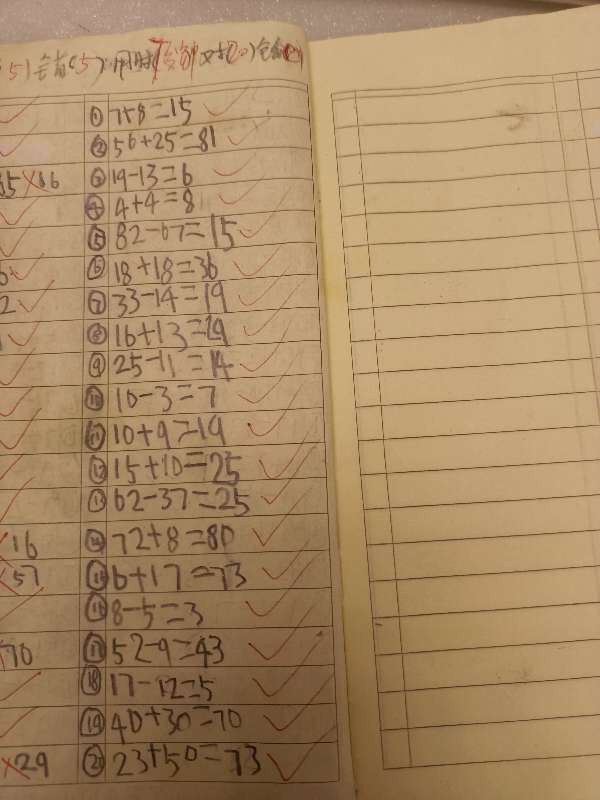 5)错(5) 用时 对(20)错(0)
① 758=15
② 56+25=81
③ 19-13=6
④ 4+4=8
⑤ 82-67=15
⑥ 18+18=36
2 ⑦ 33-14=19
⑧ 16+13=29
⑨ 25-11=14
⑩ 10-3=7
⑪ 10+9=19
⑫ 15+10=25
⑬ 62-37=25
16 ⑭ 72+8=80
57 ⑮ 6+17=73
⑯ 8-5=3
70 ⑰ 52-9=43
⑱ 17-12=5
⑲ 40+30=70
29 ⑳ 23+50=73